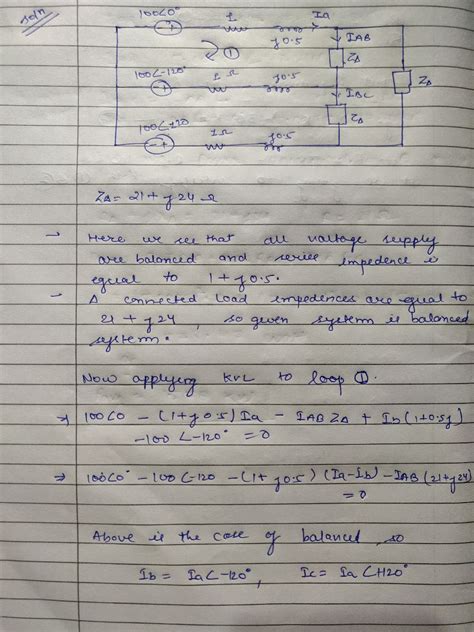 soln
100∠0° 1 Ia
j0.5
IAB
① ZΔ
100∠-120° 1Ω j0.5 ZΔ
IBC
ZΔ
100∠120 1Ω j0.5
ZΔ = 21 + j24 Ω
→ Here we see that all voltage supply
are balanced and series impedence is
equal to 1 + j0.5.
→ Δ connected load impedences are equal to
21 + j24, so given system is balanced
system.
Now applying KVL to loop ①.
⇒ 100∠0 - (1+j0.5)Ia - IAB ZΔ + Ib(1+0.5j)
-100 ∠-120° = 0
⇒ 100∠0° - 100∠-120 - (1+j0.5) (Ia-Ib) - IAB (21+j24)
= 0
Above is the case of balanced, so
Ib = Ia∠-120°, Ic = Ia∠+120°